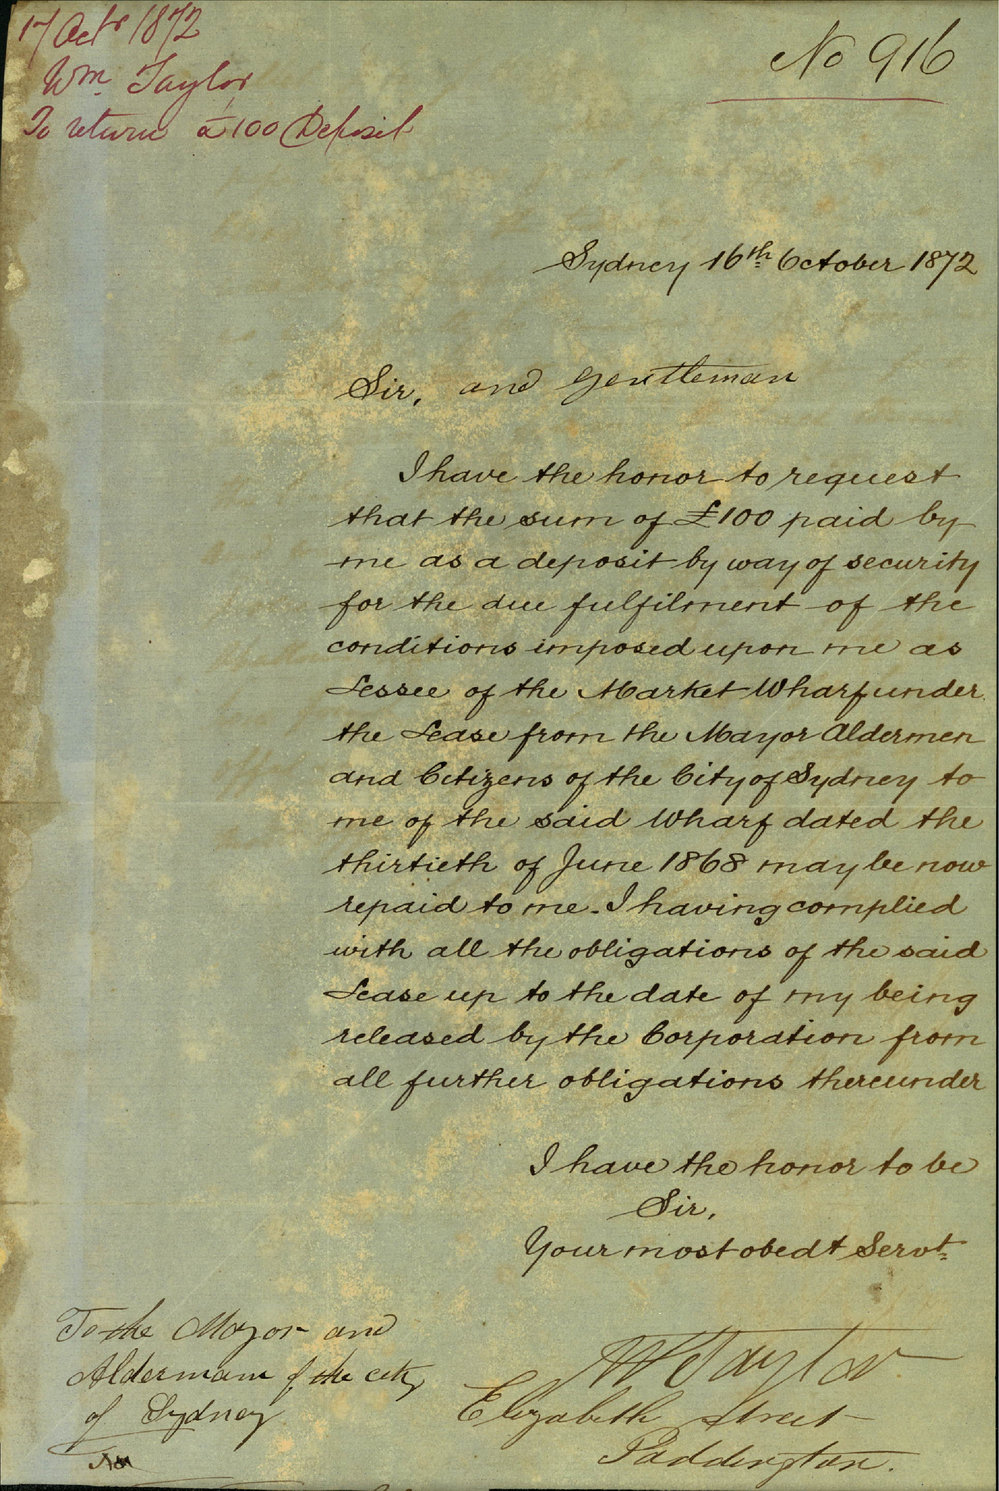 17 Octr 1872
Wm. Taylor
To return £100 Deposit
No 916
Sydney 16th October 1872
Sir, and Gentleman
I have the honor to request
that the sum of £100 paid by
me as a deposit by way of security
for the due fulfilment of the
conditions imposed upon me as
Lessee of the Market Wharf under
the Lease from the Mayor Aldermen
and Citizens of the City of Sydney to
me of the said Wharf dated the
thirtieth of June 1868 may be now
repaid to me. I having complied
with all the obligations of the said
Lease up to the date of my being
released by the Corporation from
all further obligations thereunder
I have the honor to be
Sir,
Your most obedt Servt
To the Mayor and
Aldermann of the city
of Sydney
Wm Taylor
Elizabeth Street
Paddington.